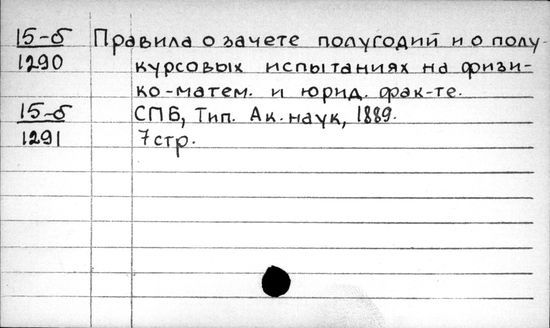 15-б Правила о зачете полугодий и о полу-
1290 курсовых испытаниях на физи-
ко-матем. и юрид. фак-те.
15-б СПБ, Тип. Ак. наук, 1889.
1291 7 стр.